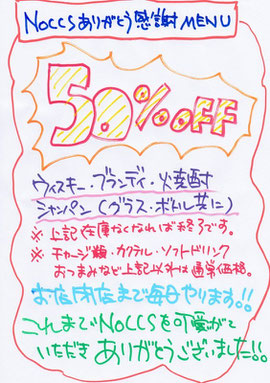 NOCCSありがとう感謝MENU
50%OFF
ウィスキー・ブランディ・火焼酎
シャンパン(グラス・ボトル共に)
※上記在庫なくなれば終了です。
※チャージ類・カクテル・ソフトドリンク
おつまみなど上記以外は通常価格。
お店閉店まで毎日やります!!
これまでNOCCSを可愛がて
いただきありがとうございました!!